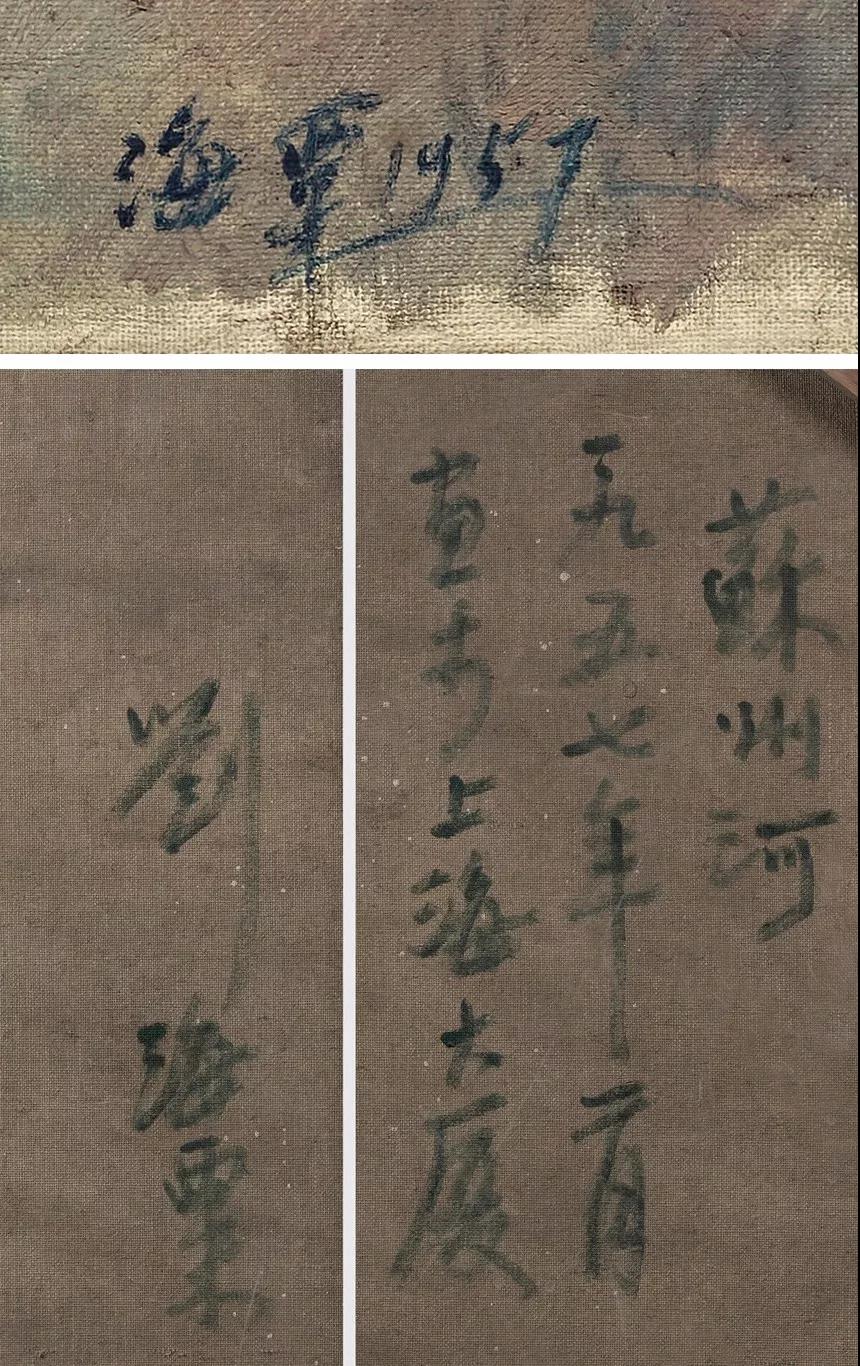 海粟1957
蘇州河
一九五七年一月
畫于上海大厦
劉海粟